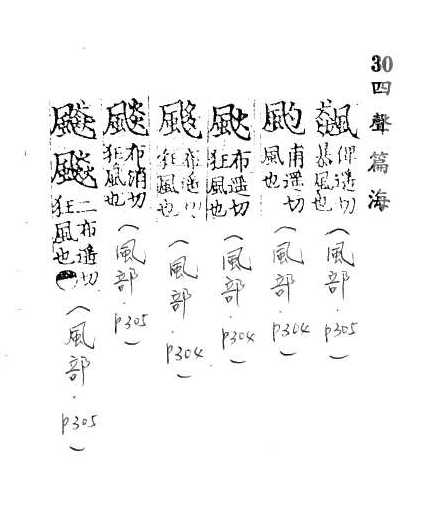 30四聲篇海
飆俾遥切暴風也(風部·p305)
甫遥切風也(風部·p304)
布遥切狂風也(風部·p304)
布遥切狂風也(風部·p304)
布消切狂風也(風部·p305)
二布遥切狂風也(風部·p305)